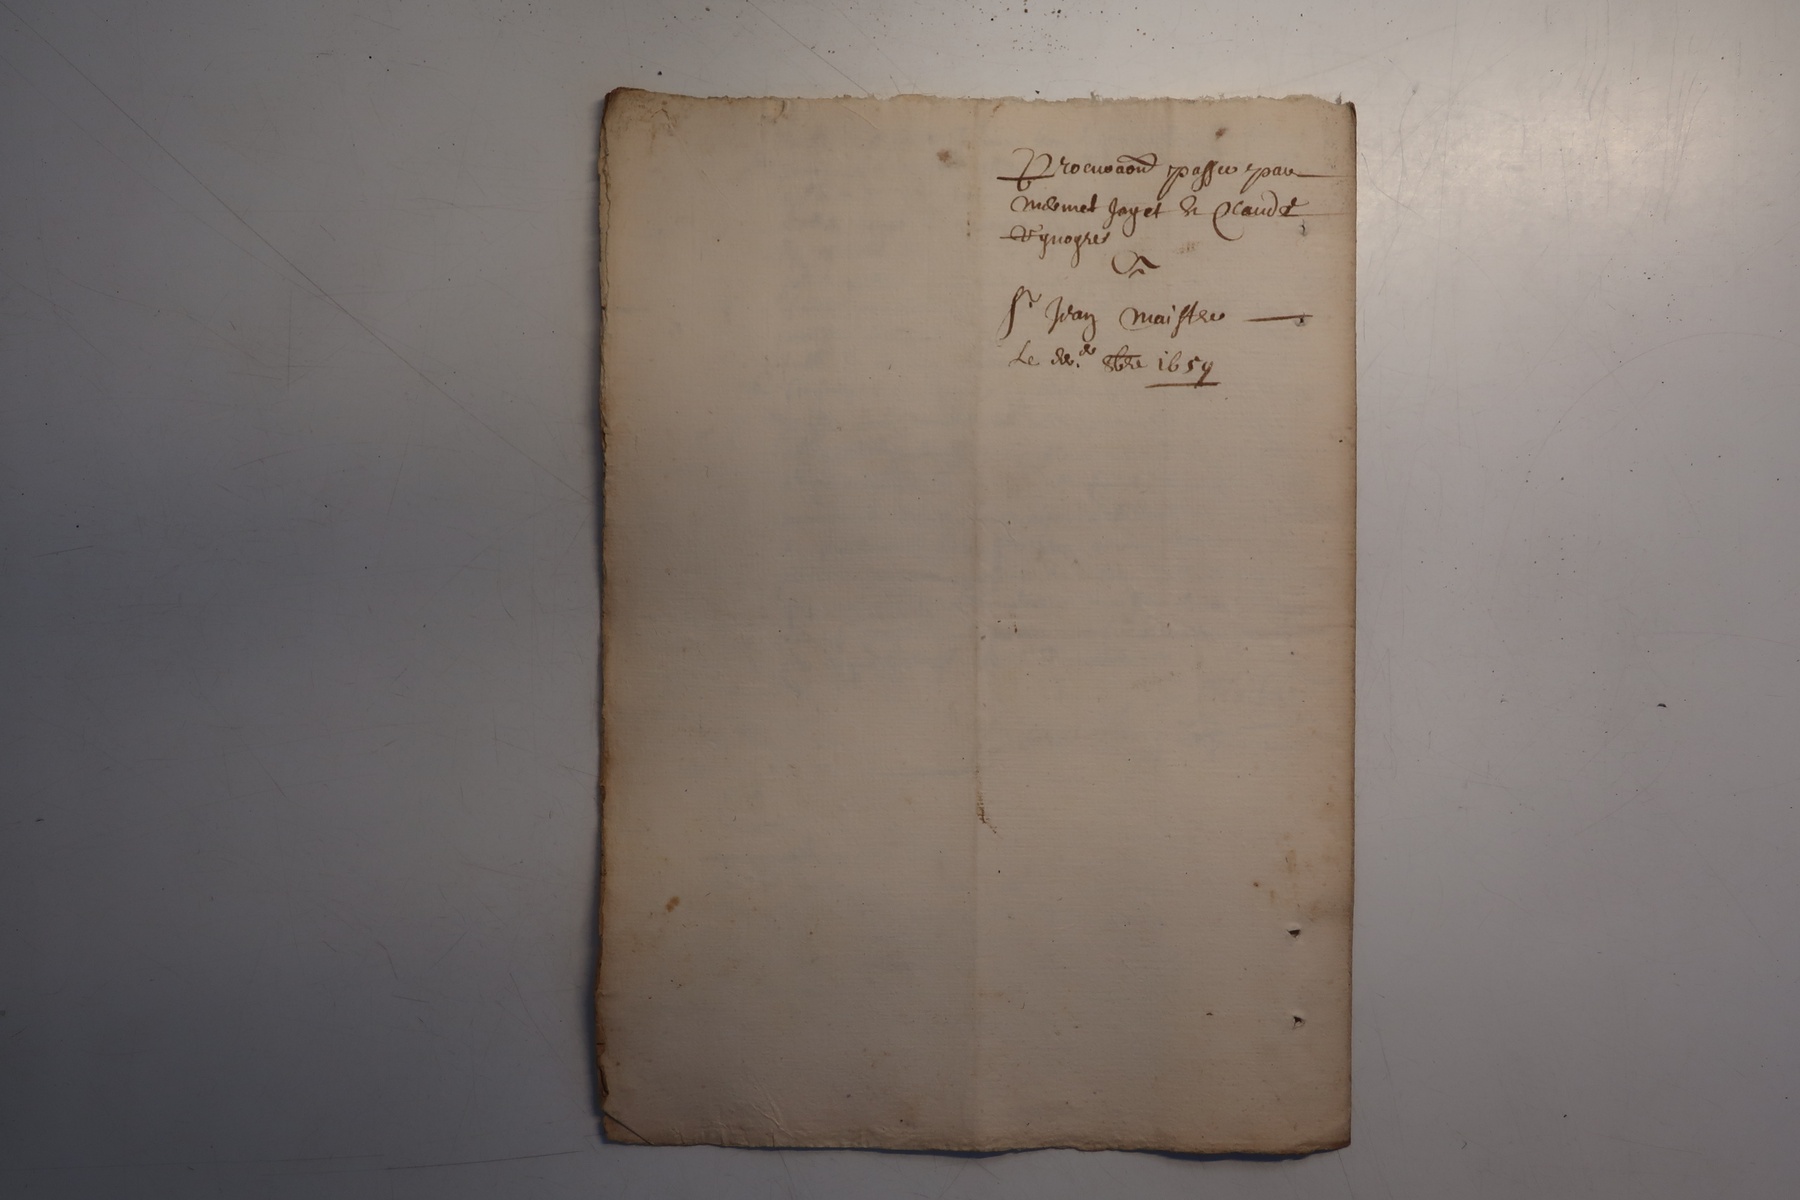 Procuraon passee par
Mermet Jayet & Claude
Vynogres
A
Sr Jean Maistre
Le 8bre 1659